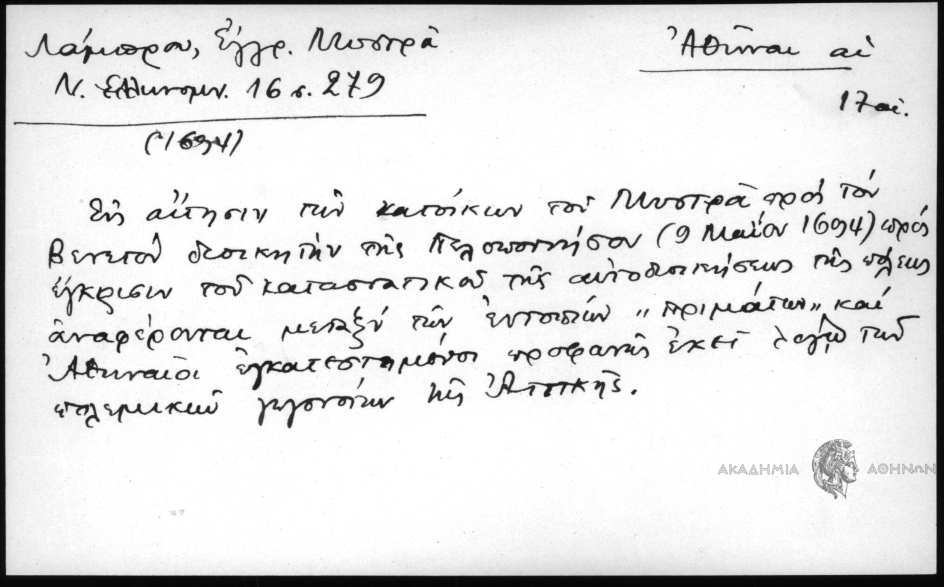 Λάμπρου, Ἔγγρ. Μυστρᾶ
Ν. Ἑλληνομν. 16 σ. 279
(1694)
Ἀθῆναι αἱ
17 αἰ.
Εἰς αἴτησιν τῶν κατοίκων τοῦ Μυστρᾶ πρὸς τὸν
Βενετὸν διοικητὴν τῆς Πελοποννήσου (9 Μαΐου 1694) πρὸς
ἔγκρισιν τοῦ καταστατικοῦ τῆς αὐτοδιοικήσεως τῆς πόλεως
ἀναφέρονται μεταξὺ τῶν ἐντοπίων „πριμάτων" καὶ
Ἀθηναῖοι ἐγκατεστημένοι προφανῶς ἐκεῖ λόγῳ τῶν
πολεμικῶν γεγονότων τῆς Ἀττικῆς.
ΑΚΑΔΗΜΙΑ ΑΘΗΝΩΝ